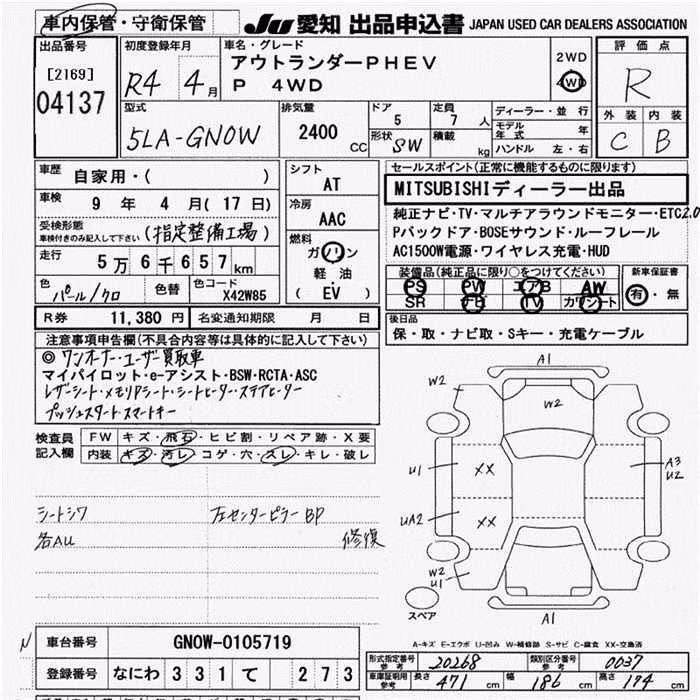 車内保管・守衛保管
JU 愛知 出品申込書 JAPAN USED CAR DEALERS ASSOCIATION
出品番号
[2169]
04137
初度登録年月
R4 4月
車名・グレード
アウトランダーPHEV
P 4WD
2WD
4WD
評価点
R
外装 内装
C B
型式
5LA-GN0W
排気量
2400 CC
ドア
5
形状 SW
定員
7 人
積載 kg
ディーラー・並行
モデル年式 年
ハンドル 左・右
車歴
自家用・( )
車検
9 年 4 月 ( 17 日)
受検形態
車検付きのみ記入して下さい
(指定整備工場)
走行
5万6千657km
色
パール/クロ
色替
色コード
X42W85
シフト
AT
冷房
AAC
燃料
ガソリン
軽油
( EV )
R券 11,380 円 名変通知期限 月 日
セールスポイント(正常に機能するものに限ります)
MITSUBISHIディーラー出品
純正ナビ・TV・マルチアラウンドモニター・ETC2.0
Pバックドア・BOSEサウンド・ルーフレール
AC1500W電源・ワイヤレス充電・HUD
装備品(純正品に限り○をつけてください)
PS PW エアB AW
SR TV カワシート
新車保証書
有・無
後日品
保・取・ナビ取・Sキー・充電ケーブル
注意事項申告欄(不具合内容等は具体的に記入して下さい)
◎ワンオーナー・ユーザー買取車
マイパイロット・e-アシスト・BSW・RCTA・ASC
レザーシート・メモリPシート・シートヒーター・ステアヒーター
プッシュスタート・スマートキー
検査員記入欄
FW キズ・飛石・ヒビ割・リペア跡・X要
内装 キズ・汚レ・コゲ・穴・スレ・キレ・破レ
シートシワ 左センターピラーBP
各AU 修復
A1
W2
W2
U1
XX
A3
U2
UA2
XX
W2
U1
スペア
A1
A-キズ E-エクボ U-凹み W-補修跡 S-サビ C-腐食 XX-交換済
車台番号 GN0W-0105719
登録番号 なにわ 331 て 273
形式指定番号 参考 20268
類別区分番号 参考 0037
車庫証明用 参考 長さ 471 cm 幅 186 cm 高さ 174 cm